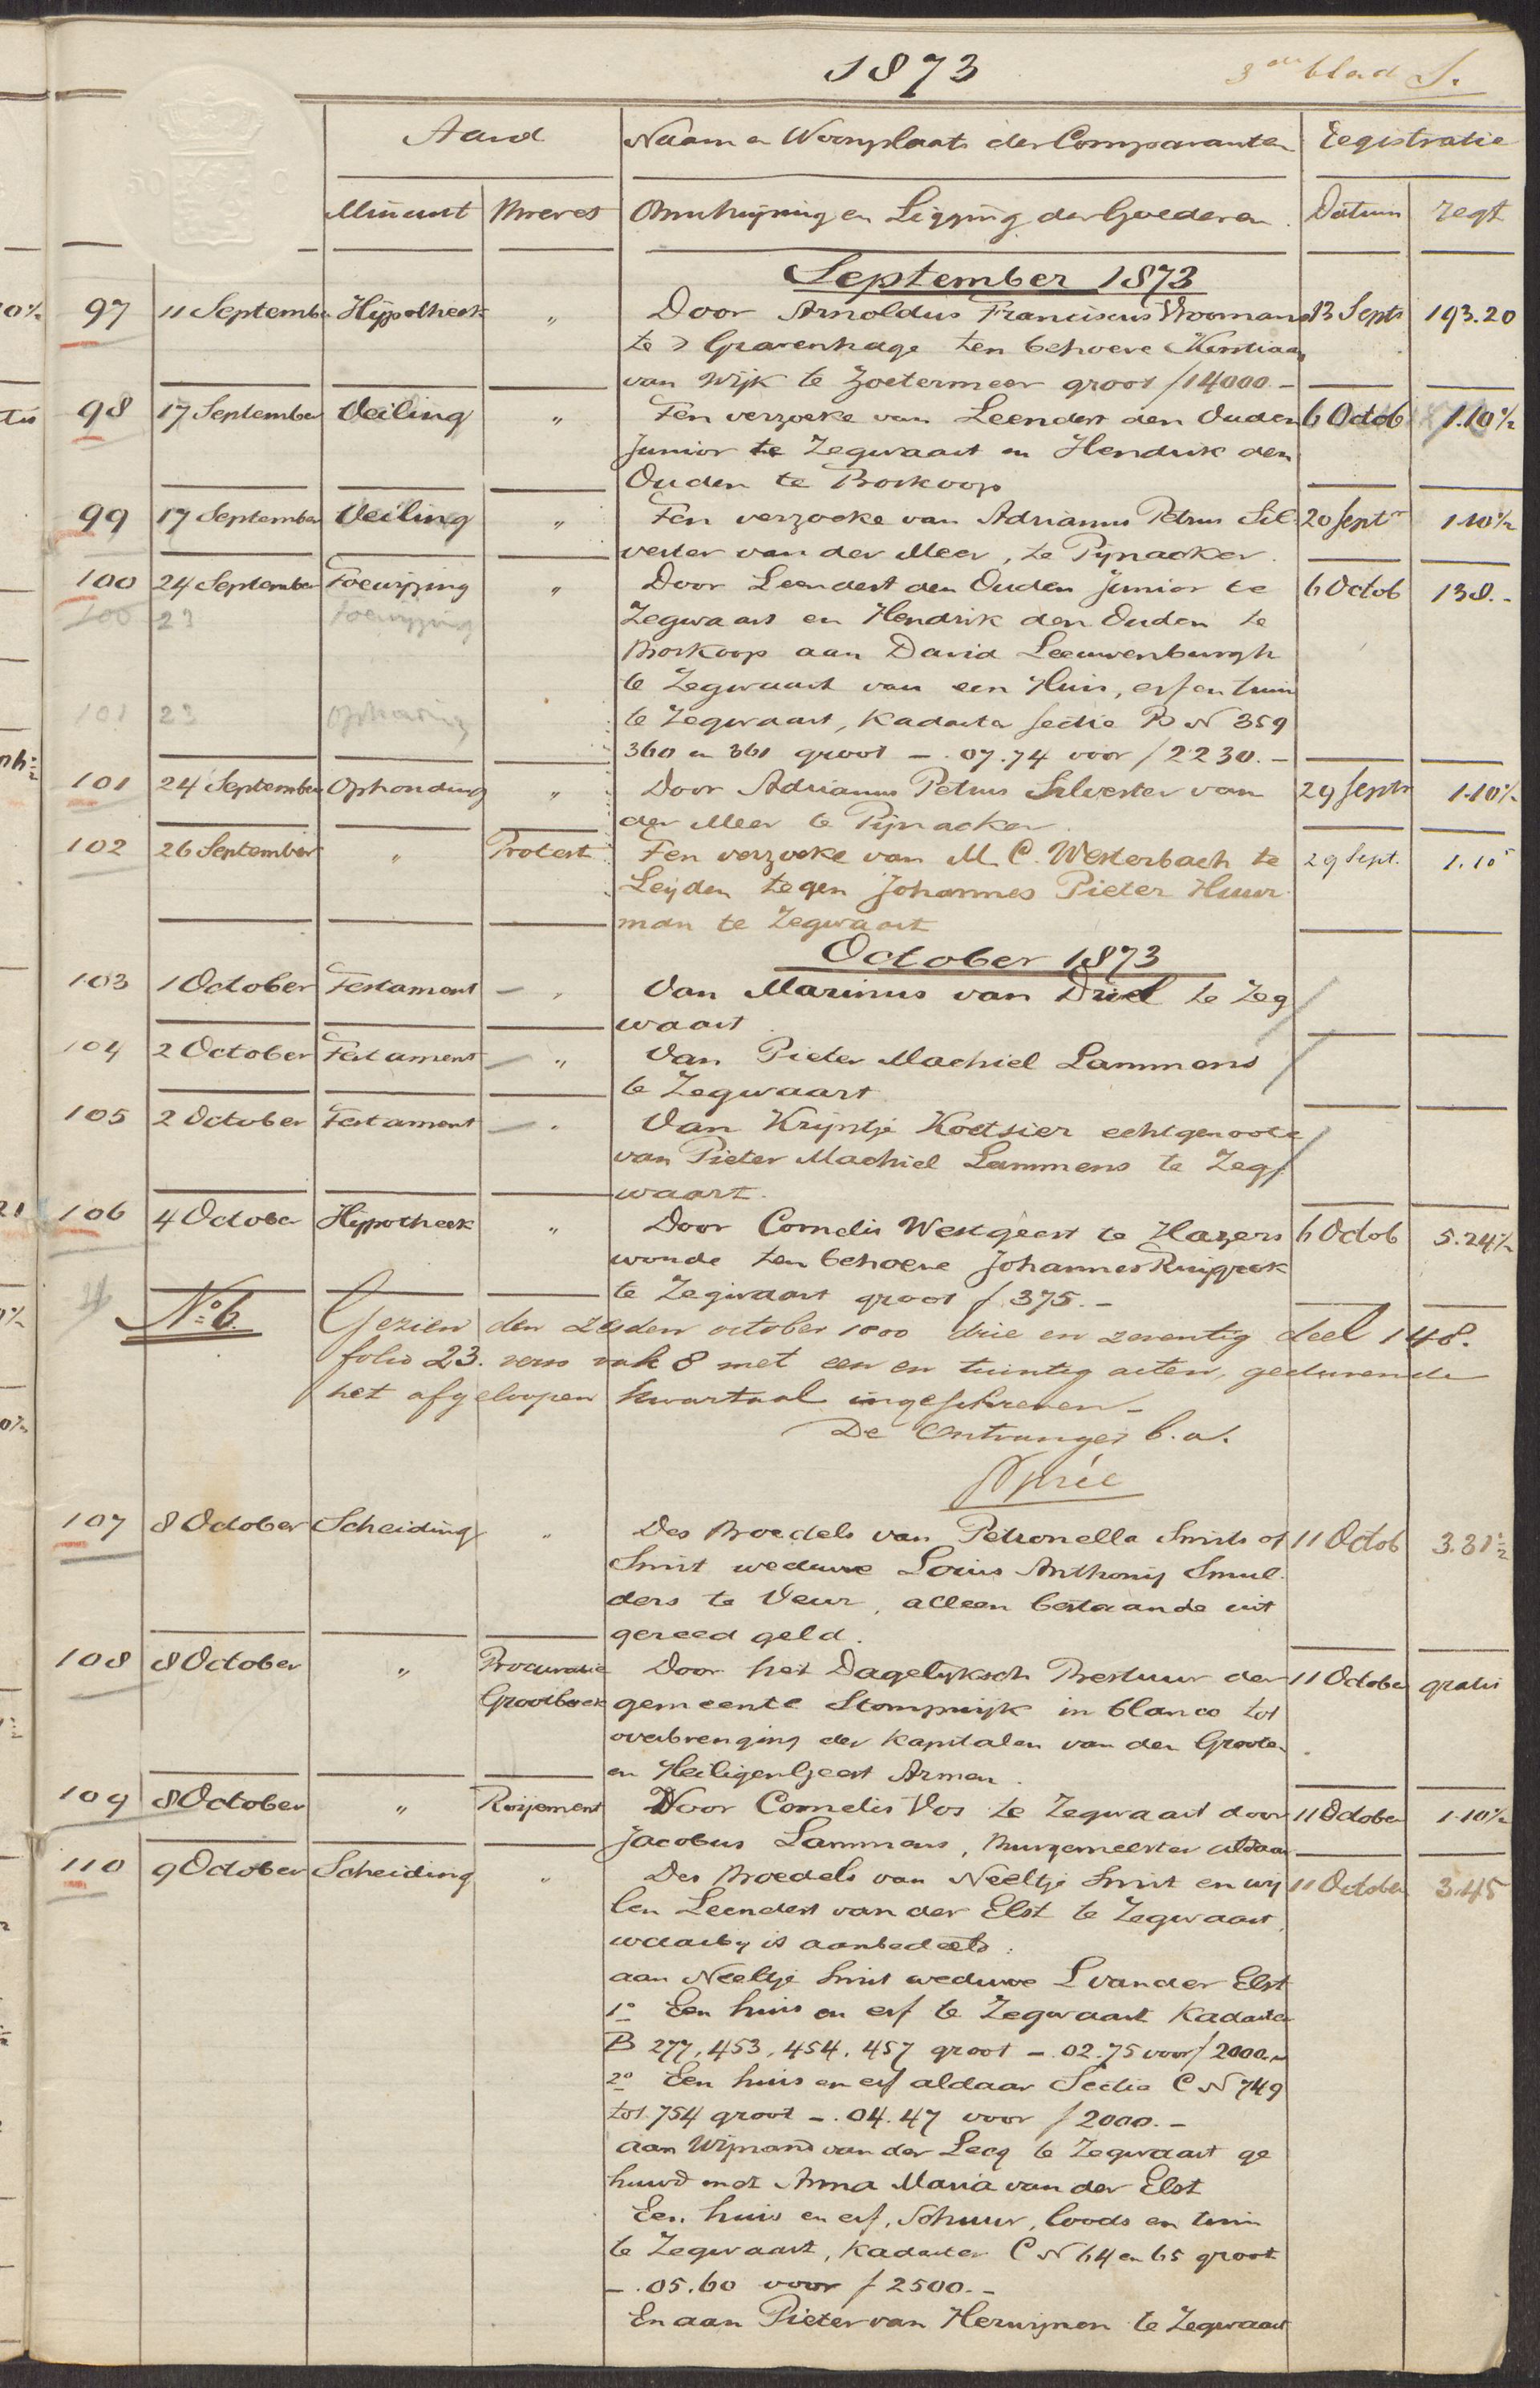 1873
3de blad S.
Aard Naam en Woonplaats der Comparanten Registratie
Minuut Brevet Omschrijving en Ligging der Goederen. Datum regt
September 1873
97 11 September Hypotheek " Door Arnoldus Franciscus Vroomans 13 Septr 193.20
te 's Gravenhage ten behoeve
van Wijk te Zoetermeer groot f 14000.-
98 17 September Veiling " Ten verzoeke van Leendert den Ouden 6 Octob 1.10½
Junior te Zegwaart en Hendrik den
Ouden te Boskoop
99 17 September Veiling " Ten verzoeke van Adrianus Petrus Sil 20 Septr 1.10½
vester van der Meer, te Pijnacker.
100 24 September Toewijzing " Door Leendert den Ouden Junior te 6 Octob 138.-
100 23 Toewijzing Zegwaart en Hendrik den Ouden te
Boskoop aan David Leeuwenburgh
te Zegwaart van een Huis, erf en tuin
101 23 te Zegwaart, Kadaster Sectie B No 359
360 en 361 groot -.07.74 voor f 2230.-
101 24 September Ophouding " Door Adrianus Petrus Silvester van 29 Septr 1.10½
der Meer te Pijnacker.
102 26 September " Protest Ten verzoeke van M. C. Westerbach te 29 Sept. 1.10⁵
Leijden tegen Johannes Pieter Huur
man te Zegwaart
October 1873
103 1 October Testament " Van Marinus van Driel te Zeg
waart.
104 2 October Testament " Van Pieter Machiel Lammens
te Zegwaart.
105 2 October Testament " Van Krijntje Koetsier echtgenoote
van Pieter Machiel Lammens te Zeg
waart.
106 4 October Hypotheek " Door Cornelis Westgeest te Hazers 6 Octob 5.24½
woude ten behoeve Johannes Ruigrok
te Zegwaart groot f 375.-
No 6. Gezien den zesden october 1800 drie en zeventig deel 148.
folio 23. verso vak 8 met een en twintig acten, gedurende
het afgeloopen kwartaal ingeschreven.-
De Ontvanger b.a.
107 8 October Scheiding " Des Boedels van Petronella Smits of 11 Octob 3.31½
Smit weduwe Louis Anthonij Smul
ders te Veur, alleen bestaande uit
gereed geld.
108 8 October " Procuratie Door het Dagelijksch Bestuur der 11 October gratis
Grootboek gemeente Stompwijk in blanco tot
overbrenging der Kapitalen van den Groote
en Heiligen Geest Armen.
109 8 October " Roijement Voor Cornelis Vos te Zegwaart door 11 October 1.10½
Jacobus Lammens, Burgemeester aldaar
110 9 October Scheiding " Des Boedels van Neeltje Smit en wij 11 October 3.45
len Leendert van der Elst te Zegwaart,
waarbij is aanbedeeld:
aan Neeltje Smit weduwe L van der Elst
1o Een huis en erf te Zegwaart Kadaster
B 277, 453, 454, 457 groot -.02.75 voor f 2000.-
2o Een huis en erf aldaar Sectie C No 749
tot 754 groot -.04.47 voor f 2000.-
aan Wijnand van der Lecq te Zegwaart ge
huwd met Anna Maria van der Elst
Een huis en erf, Schuur, loods en tuin
te Zegwaart, Kadaster C No 64 en 65 groot
-.05.60 voor f 2500.-
En aan Pieter van Herwijnen te Zegwaart